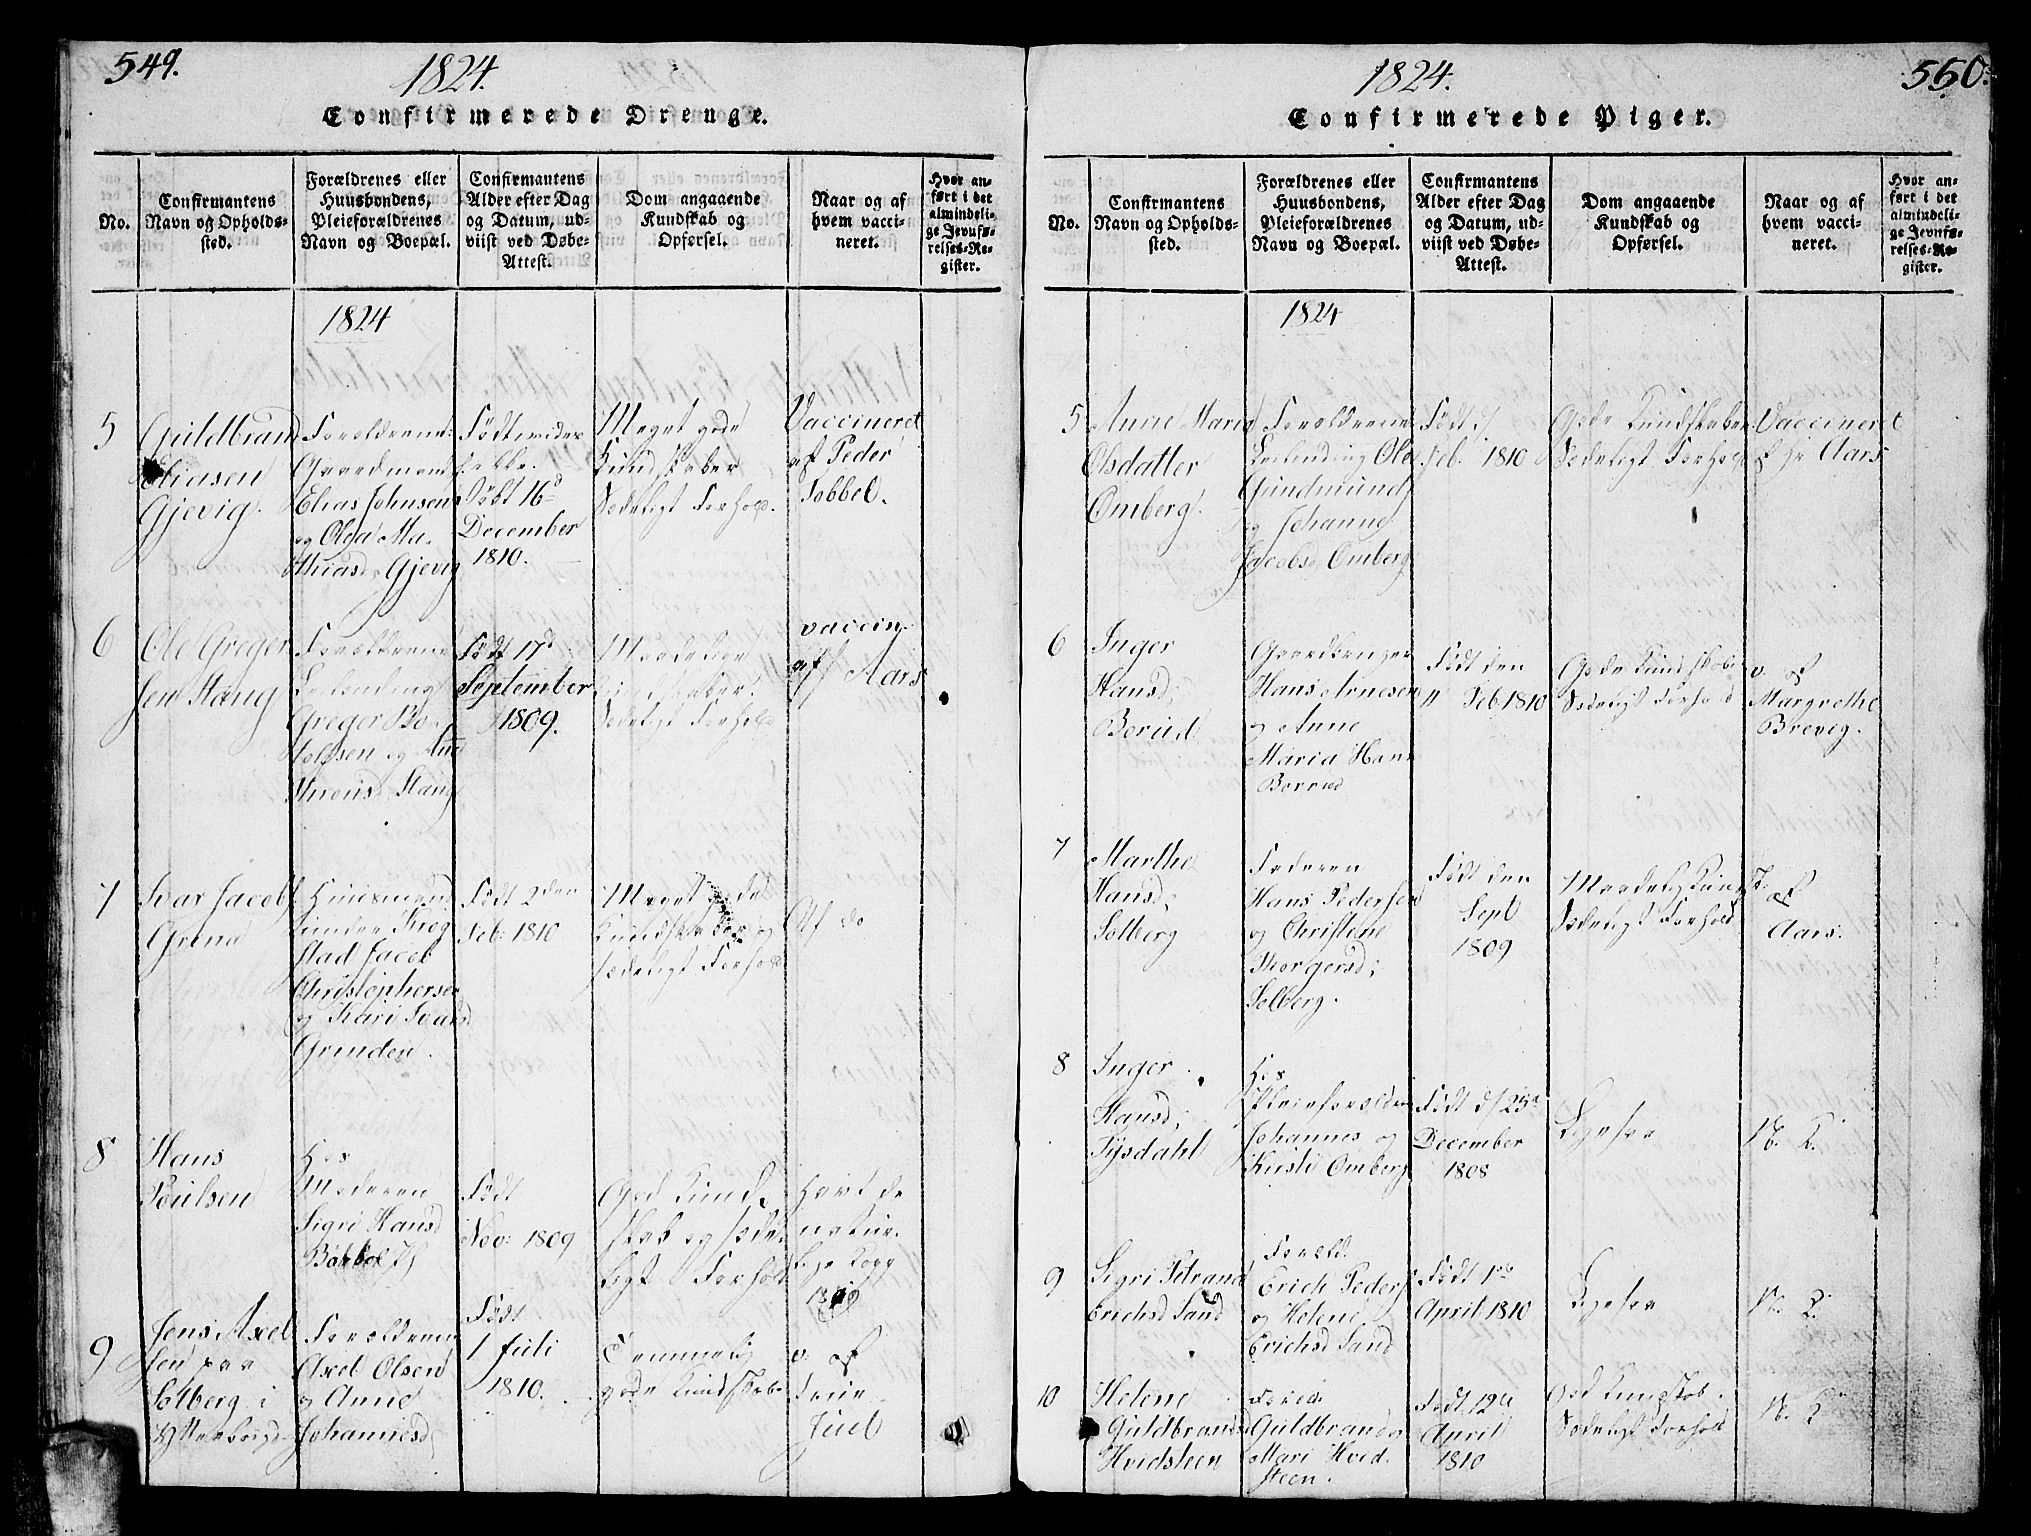 549.
1824.
Confirmerede Drenge.
No.
Confirmantens
Navn og Opholds-
sted.
Forældrenes eller
Huusbondens,
Pleieforældrenes
Navn og Boepæl.
Confirmantens
Alder efter Dag
og Datum, ud-
viist ved Døbe-
Attest.
Dom angaaende
Kundskab og
Opførsel.
Naar og af
hvem vacci-
neret.
Hvor an-
ført i det
almindeli-
ge Jevnfø-
relses-Re-
gister.
1824
5
Guldbrand
Eliasen
Gjevig.
Forældrene
Gaardmand
Elias Johnsen
og Olea Ma-
thiasd. Gjevig
Døbt 16d
December
1810.
Meget gode
Kundskaber
Sædeligt Forhold.
Vaccineret
af Peder
Sobbel.
6
Ole Greger
sen Stang
Forældrene
Leilending
Greger Bo-
Stang
Født 17d
September
1809.
Kundskaber.
Sædeligt Forhold
vaccin.
af Aars
7
Ivar Jacobs
Grena
Huusmand
under Krog
stad Jacob
Christophersen
og Kari Ivarsd
Grinden.
Født 2den
Feb: 1810
Meget gode
Kundskaber og
sædeligt Forhold
Af do
8
Hans
Poulsen
Moderen
Sigri Hansd
Født
Nov: 1809
God Kund-
skab og sæde-
ligt Forhold
Havt de
natur-
lige Kopp
9
Jens Axel
sen paa
Solberg i
Forældrene
Axel Olsen
og Anne
Johannesd
Født
1 Juli
1810.
Temmelig
gode Kundskab.
v. af
Frue
Juel
550.
1824.
Confirmerede Piger.
No.
Confirmantens
Navn og Opholds-
sted.
Forældrenes eller
Huusbondens,
Pleieforældrenes
Navn og Boepæl.
Confirmantens
Alder efter Dag
og Datum, ud-
viist ved Døbe-
Attest.
Dom angaaende
Kundskab og
Opførsel.
Naar og af
hvem vacci-
neret.
Hvor an-
ført i det
almindeli-
ge Jevnfø-
relses-Re-
gister.
1824
5
Anne Maria
Olsdatter
Omberg.
Forældrene
Leilending Ole
Gundmunds
og Johanne
Jacobsd Omberg
Født d/
Feb. 1810
Gode Kundskaber
Sædeligt Forhold
Vaccineret
af Hr Aars
6
Inger
Hansd;
Borud
Gaardbruger
Hans Arnesen
og Anne
Maria Hans
Borrud
Født den
11 Feb. 1810
Gode Kundskabe
Sædeligt Forhold
v. af
Margrethe
Brevig.
7
Marthe
Hansd;
Solberg
Faderen
Hans Pedersen
og Christene
Thorgersd;
Solberg.
Født den
Sept
1809
Maadelig Kundsk.
Sædeligt Forhold
af
Aars.
8
Inger
Hansd;
Tysdahl
Hos
Pleieforældrene
Johannes og
Kirsti Omberg
Født d/ 25d
December
1808
Ligesaa
N. K.
9
Sigri Strand
Erichsd Sand
Foræld.
Erich Peders
og Helene
Erichsd Sand
Født 1ste
April 1810
Ligesaa
10
Helene
Guldbrands
Hvidsteen
Foræld.
Guldbrand og
Mari Hvid-
steen.
Født 12te
April
1810
God Kundskab.
Sædeligt Forhold